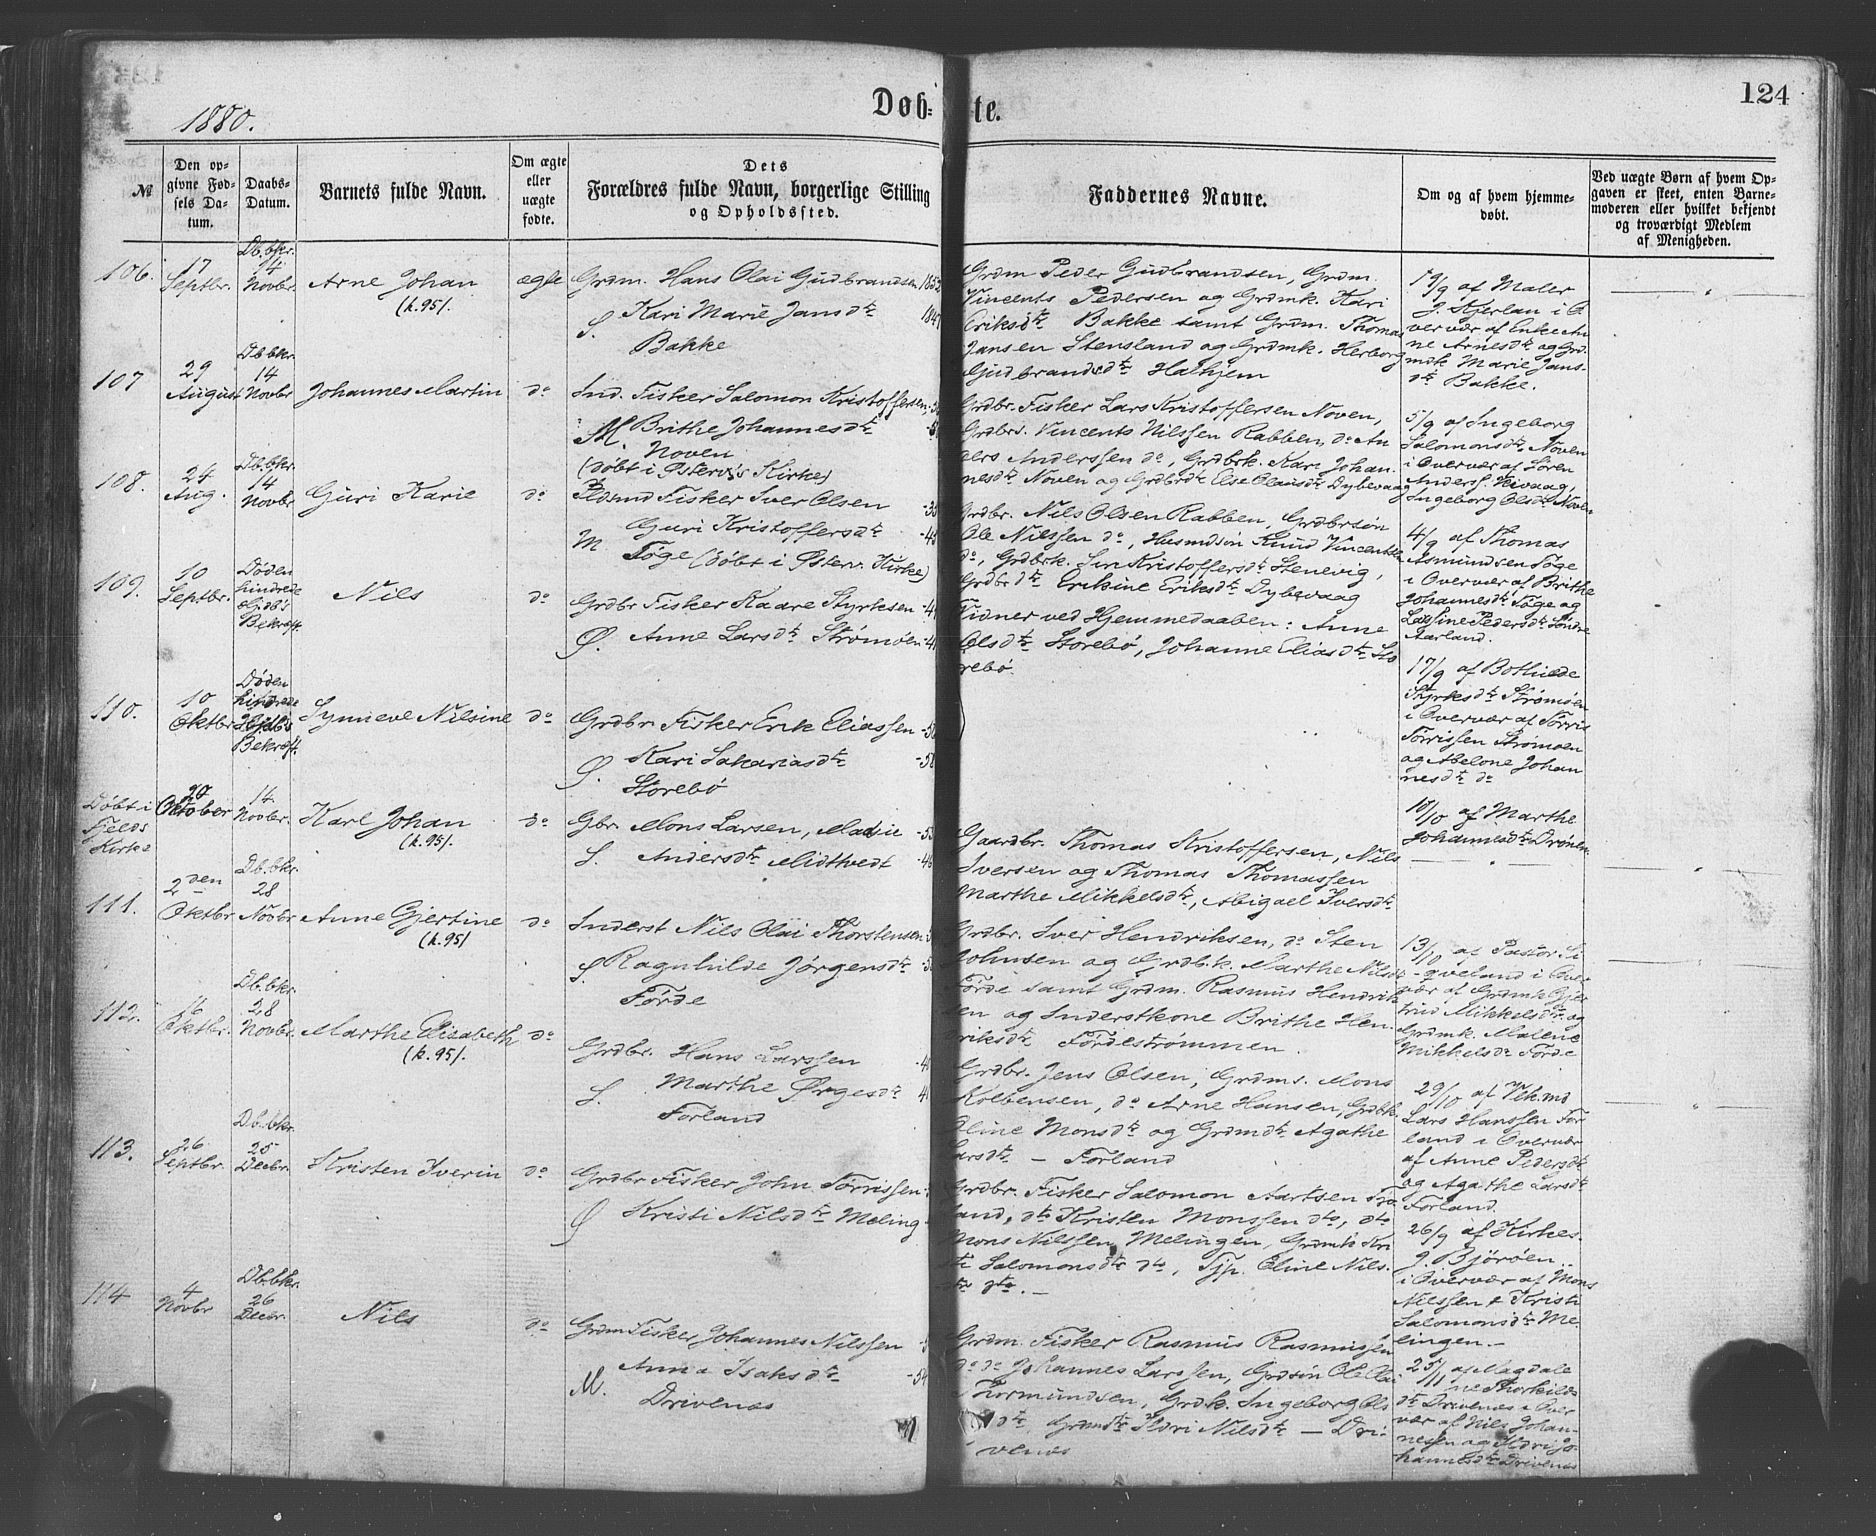 124
1880.
Døb-
te.
№
Den op-
givne Fød-
sels Da-
tum.
Daabs-
Datum.
Barnets fulde Navn.
Om ægte
eller
uægte
fødte.
Dets
Forældres fulde Navn, borgerlige Stilling
og Opholdssted.
Faddernes Navne.
Om og af hvem hjemme-
døbt.
Ved uægte Børn af hvem Op-
gaven er skeet, enten Barne-
moderen eller hvilket bekjendt
og troværdigt Medlem
af Menigheden.
106.
17
Septbr.
Db.bkr.
14
Novbr
Arne Johan
(k.95).
ægte
Grdm. Hans Olai Gudbrandsen 1852
Kari Marie Jansdtr 1847
S.
Bakke
Grdm Peder Gudbrandsen, Grdm.
Vincents Pedersen og Grdmk. Kari
Eriksdtr Bakke samt Grdm. Thomas
Jansen Stensland og Grdmk. Herborg
Gudbrandsdtr Halhjem
19/9 af Maler
J. Kjerlan i O
vervær af Enke An
ne Arnesdtr og Grd.
mdk Marie Jans-
dtr Bakke.
107
29
August
Db.bkr.
14
Novbr
Johannes Martin
do
Ind. Fisker Salomon Kristoffersen
M. Brithe Johannesdtr
Noven
(døbt i Østerv's Kirke)
Grdbr. Fisker Lars Kristoffersen Noven,
Grdbrs. Vincents Nilssen Rabben, do An
ders Anderssen do, Grdbrk. Kari Johan.
nesdtr Noven og Grdbrdtr Else Olausdtr Dybevaag
5/9 af Ingeborg
Salomonsdtr Noven
i Overvær af Søren
Anders. Vivaag,
Ingeborg Olsdtr Noven
108.
24
Aug.
Db.bkr.
14
Novbr
Guri Karie
do
Fisker Iver Olsen
Guri Kristoffersdtr
M.
Føge (døbt i Østerv. Kirke)
Grdbr. Nils Olsen Rabben, Grdbrsøn
Ole Nilssen do, Husmdsøn Knud Vincentss
do, Grdbrk. Siri Kristoffersdtr Stenevig,
Grdbrdtr Erikine Eriksdtr Dybevaag
4/9 af Thomas
Asmundsen Føge
i Overvær af Brithe
Johannesdtr Føge og
Lassine Pedersdtr Søndre
Aarland.
109.
10
Septbr.
Døden
hindrede
Hjdb's
Bekræft.
Nils
do
Grdbr Fisker Kaare Styrksen -41
Ø. Anne Larsdtr Strømøen -41
Vidner ved Hjemmedaaben: Anne
Olsdtr Storebø, Johanne Eliasdtr Sto
rebø
17/9 af Bothilde
Styrksdtr Strømøen
i Overvær af Tørris
Tørrissen Strømøen
og Abelone Johan
nesdtr do
110.
10
Oktbr
Døden
hindrede
Hjdb's
Bekræft.
Synneve Nilsine
do
Grdbr Fisker Erik Eliassen
Kari Sakariasdtr -58
Ø.
Storebø
10/10 af Marthe
Johannesdtr Drønen
Døbt i
Fjelds
Kirke
20
Oktober
14
Novbr.
Karl Johan
(k.95).
do
Gbr. Mons Larsen, Marie -53
S. Andersdtr Midtvedt -46
Gaardbr. Thomas Kristoffersen, Nils
Iversen og Thomas Thomassen
Marthe Mikkelsdtr, Abigael Iversdtr
111.
2den
Oktbr
Db.bkr.
28
Novbr
Anne Gjertine
(k.95)
do
Inderst Nils Olai Thorstensen
S. Ragnhilde Jørgensdtr
Førde
Grdbr. Iver Hendriksen, do Sten
Johnsen og Grdb.k. Marthe Nilsd
Førde samt Grdm. Rasmus Hendrik
sen og Inderstkone Brithe Hen
riksdtr Førdestrømmen.
13/10 af Pastor Si
qveland i Over
vær af Grdmk Gjer
trud Mikkelsdtr og
Grdmk. Malene
Mikkelsdtr Førde
112.
16
Oktbr.
Db.bkr.
28
Novbr.
Marthe Elisabeth
(k.95).
do
Grdbr. Hans Larssen
S. Marthe Ørgesdtr
Forland
Grdbr. Jens Olsen, Grdms. Mons
Kolbensen, do Arne Hansen, Grdbk.
Oline Monsdtr og Grdmdtr Agathe
Larsdtr – Forland
29/10 af Vekmd
Lars Hanssen For
land i Overvær
af Anne Pedersdtr
og Agathe Larsdtr
Forland.
113.
26
Septbr.
Db.bkr.
25
Decbr.
Kristen Iverin
do
Grdbr Fisker John Tørrissen
Ø Kristi Nilsdtr Meling
Grdbr. Fisker Salomon Aartsen Fro
land, dto Kristen Monssen dto, dto
Mons Nilssen Melingen, Grdmk Kri
sti Salomonsdtr dto, Tjp. Oline Nils.
dtr dto. –
26/9 af Kirkes.
J. Bjørøen
i Overvær af Mons
Nilssen & Kristi
Salomonsdtr Me
lingen. –
114
4
Novbr
Db.bkr.
26
Decbr.
Nils
do
Grdm Fisker Johannes Nilssen
Anna Isaksdtr -54
M.
Drivenæs
Grdm. Fisker Rasmus Rasmussen
do do Johannes Larssen, Grdsøn Ole Olai
Thormundsen, Grdk. Ingeborg Ols
dtr, Grdmdtr Sidri Nilsdtr – Dri-
venæs
25/11 af Magdale
ne Thorkilds
dtr Drivenæs i Over
vær af Nils Johan-
nessen og Sidri Jo
hannesdtr Drivenæs